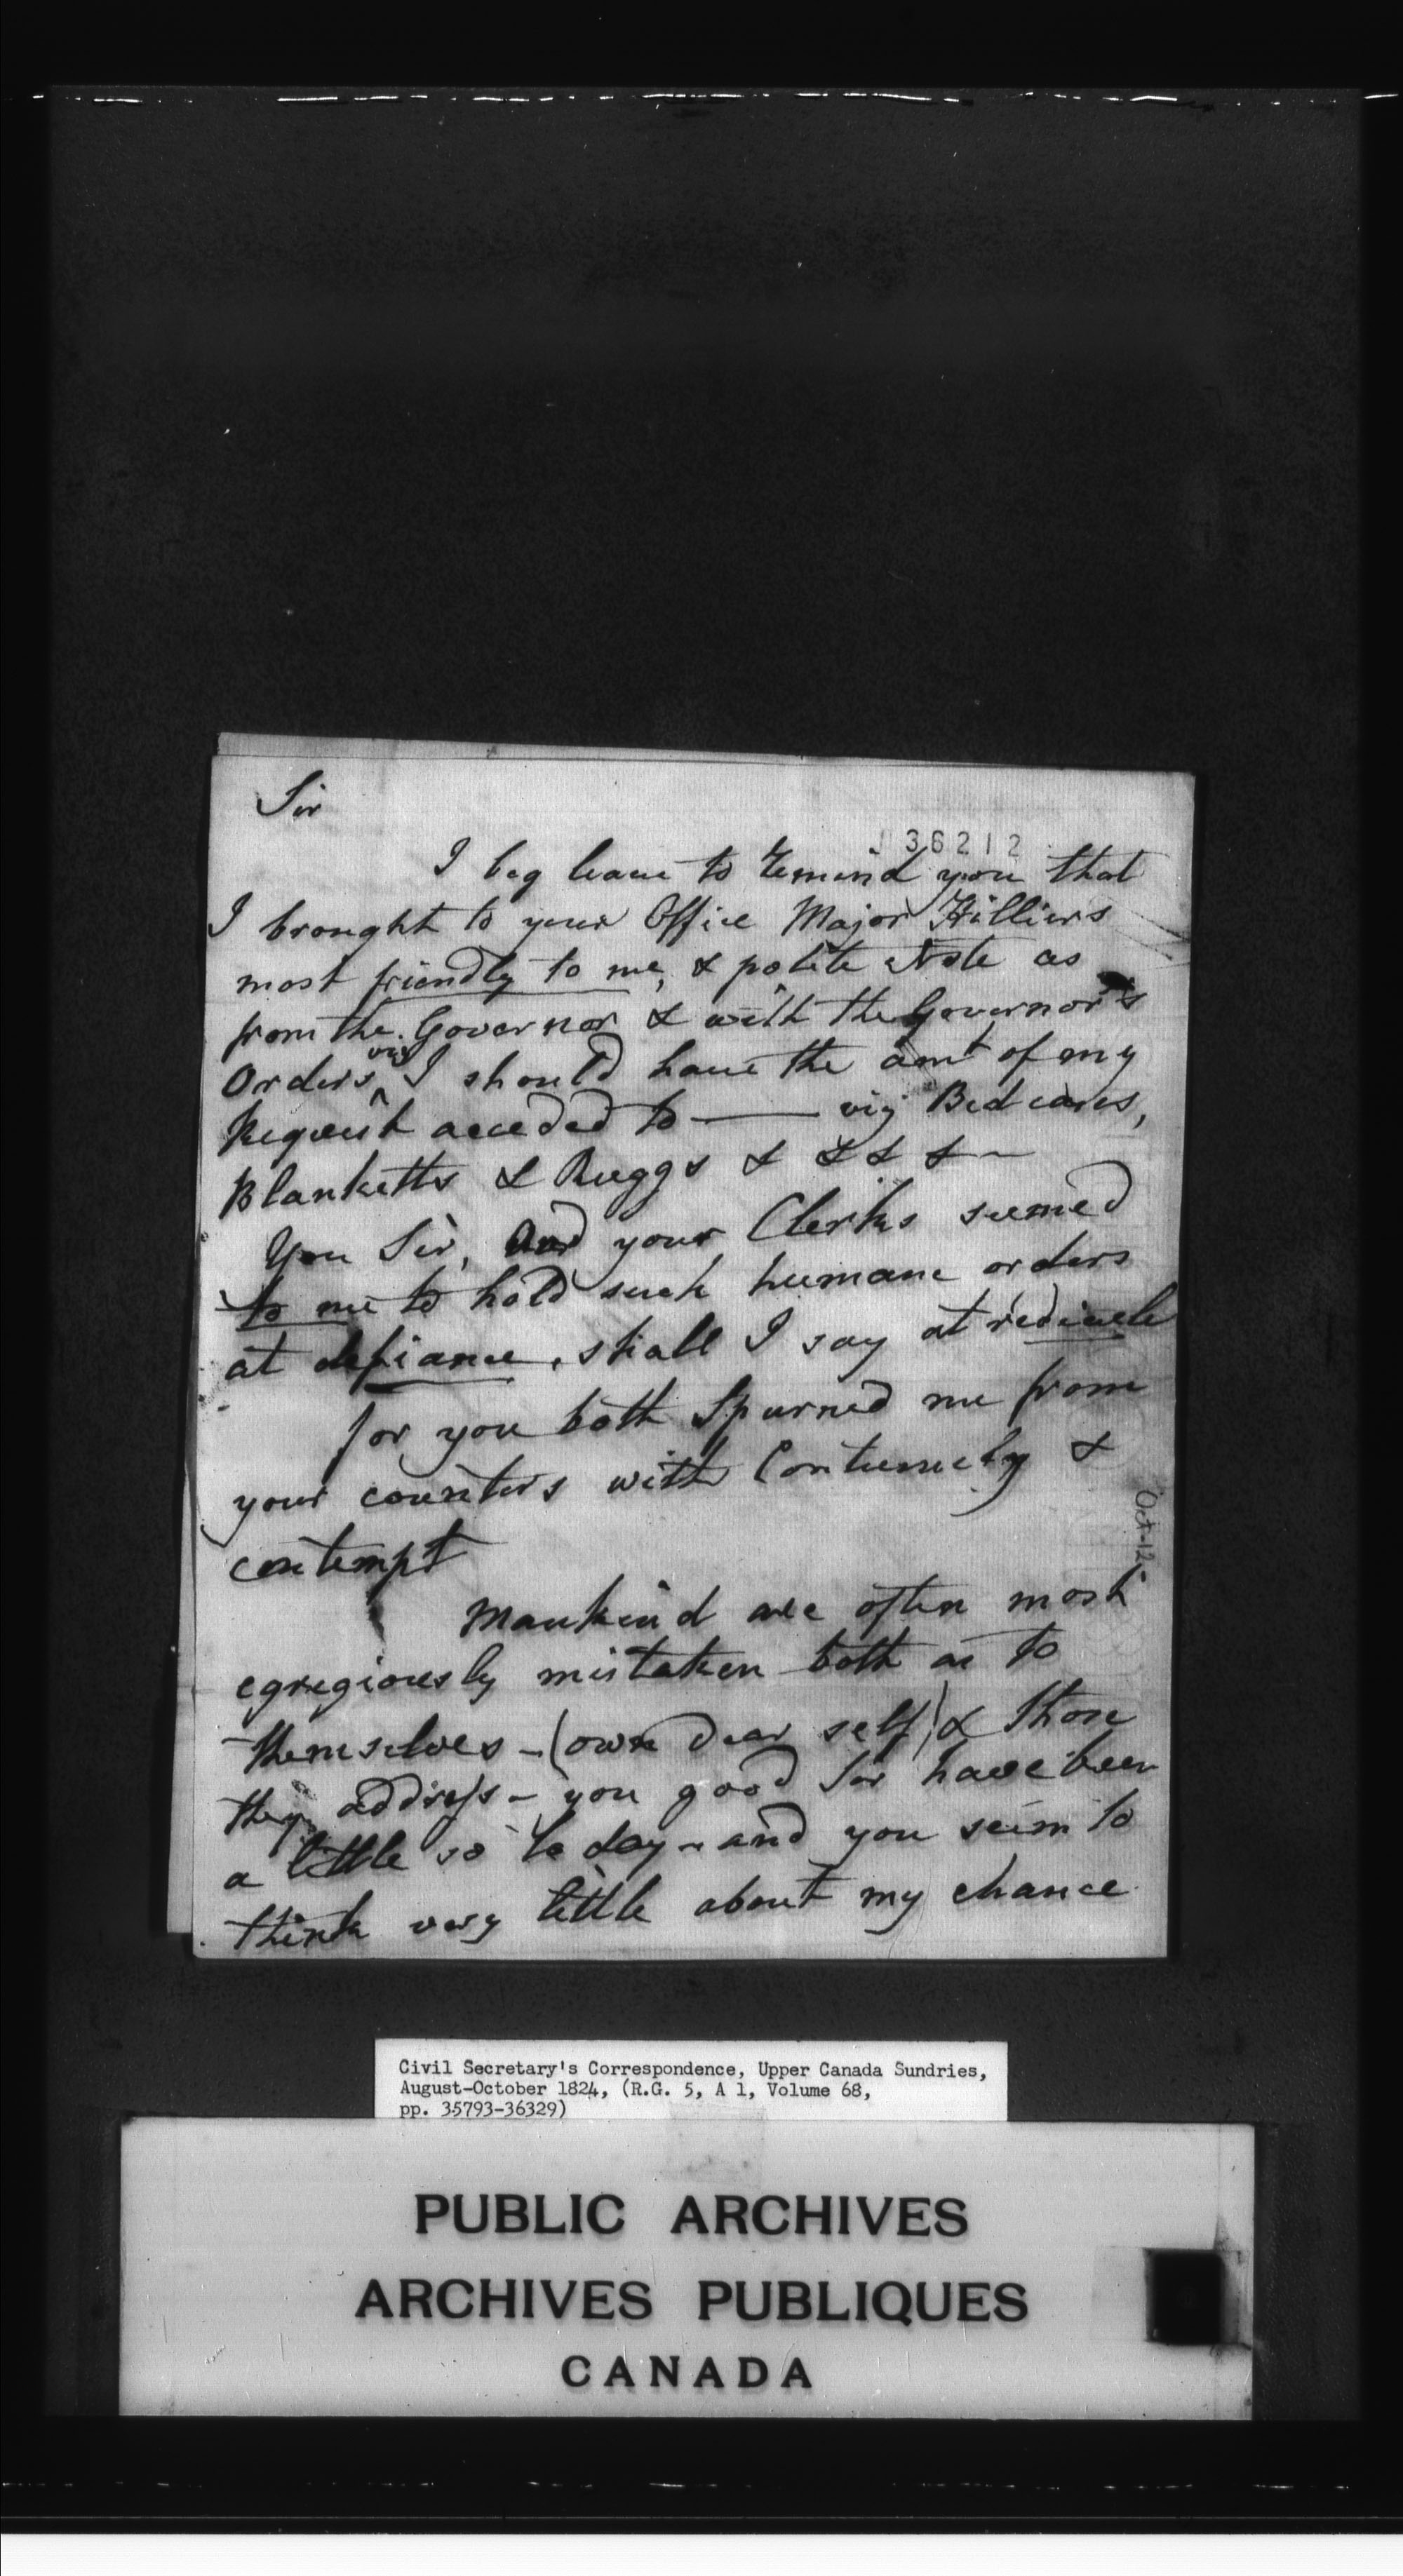 Sir
36212
I beg leave to remind you that
I brought to your Office Major Hilliers
most friendly to me, & polite Note as
from the Governor & with the Governor's
Orders, viz I should have the amt of my
Request acceded to — viz Bedcases,
Blanketts & Ruggs & & & & —
You Sir, and your Clerks seemed
to me to hold such humane orders
at defiance, shall I say at redicule
for you both Spurned me from
your counters with Contumely &
contempt
Oct-12
Mankind are often most
egregiously mistaken both as to
themselves - (own dear self) & those
they address - you good Sir have been
a little so to day - and you seem to
think very little about my chance
Civil Secretary's Correspondence, Upper Canada Sundries,
August-October 1824, (R.G. 5, A 1, Volume 68,
pp. 35793-36329)
PUBLIC ARCHIVES
ARCHIVES PUBLIQUES
CANADA